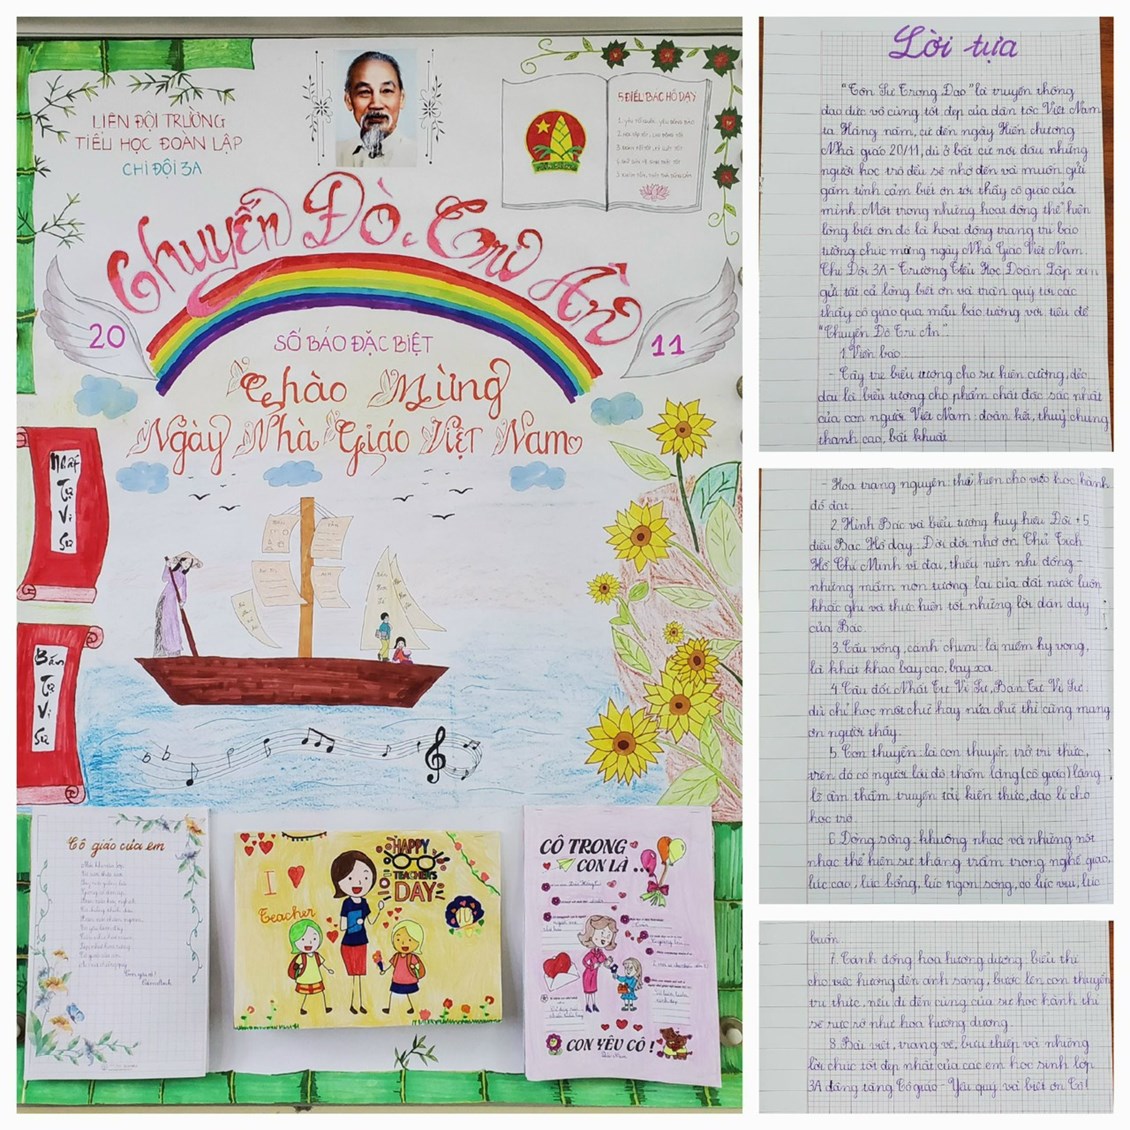 LIÊN ĐỘI TRƯỜNG
TIỂU HỌC ĐOÀN LẬP
CHI ĐỘI 3A
5 ĐIỀU BÁC HỒ DẠY
Chuyến Đò Tri Ân
20
11
SỐ BÁO ĐẶC BIỆT
Chào Mừng
Ngày Nhà Giáo Việt Nam
Nhất
Tự
Vi
Sư
Bán
Tự
Vi
Sư
Cô giáo của em
I
Teacher
HAPPY
TEACHER'S
DAY
CÔ TRONG
CON LÀ...
CON YÊU CÔ!
Lời tựa
"Tôn Sư Trọng Đạo" là truyền thống
đạo đức vô cùng tốt đẹp của dân tộc Việt Nam
ta. Hàng năm, cứ đến ngày Hiến chương
Nhà giáo 20/11, dù ở bất cứ nơi đâu những
người học trò đều sẽ nhớ đến và muốn gửi
gắm tình cảm biết ơn tới thầy cô giáo của
mình. Một trong những hoạt động thể hiện
lòng biết ơn đó là hoạt động trang trí báo
tường chúc mừng ngày Nhà Giáo Việt Nam.
Chi Đội 3A - Trường Tiểu Học Đoàn Lập xin
gửi tất cả lòng biết ơn và trân quý tới các
thầy cô giáo qua mẫu báo tường với tiêu đề
"Chuyến Đò Tri Ân".
1. Viền báo
- Cây tre biểu tượng cho sự kiên cường, dẻo
dai là biểu tượng cho phẩm chất đặc sắc nhất
của con người Việt Nam: đoàn kết, thuỷ chung
thanh cao, bất khuất
- Hoa trạng nguyên thể hiện cho việc học hành
đỗ đạt.
2. Hình Bác và biểu tượng huy hiệu Đội + 5
điều Bác Hồ dạy: Đời đời nhớ ơn Chủ Tịch
Hồ Chí Minh vĩ đại, thiếu niên nhi đồng -
những mầm non tương lai của đất nước luôn
khắc ghi và thực hiện tốt những lời dặn dạy
của Bác.
3. Cầu vồng, cánh chim: là niềm hy vọng,
là khát khao bay cao, bay xa.
4. Câu đối Nhất Tự Vi Sư, Bán Tự Vi Sư:
dù chỉ học một chữ hay nửa chữ thì cũng mang
ơn người thầy.
5. Con thuyền: là con thuyền trở tri thức,
trên đó có người lái đò thầm lặng (cô giáo) lặng
lẽ âm thầm truyền tải kiến thức, đạo lí cho
học trò.
6. Dòng sông: khuông nhạc và những nốt
nhạc thể hiện sự thăng trầm trong nghề giáo,
lúc cao, lúc bổng, lúc ngọn sóng, có lúc vui, lúc
buồn.
7. Cánh đồng hoa hướng dương: biểu thị
cho việc hướng đến ánh sáng, bước lên con thuyền
tri thức, nếu đi đến cùng của sự học hành thì
sẽ rực rỡ như hoa hướng dương.
8. Bài viết, trang vẽ, bưu thiếp và những
lời chúc tốt đẹp nhất của các em học sinh lớp
3A dâng tặng Cô giáo - Yêu quý và biết ơn Cô!